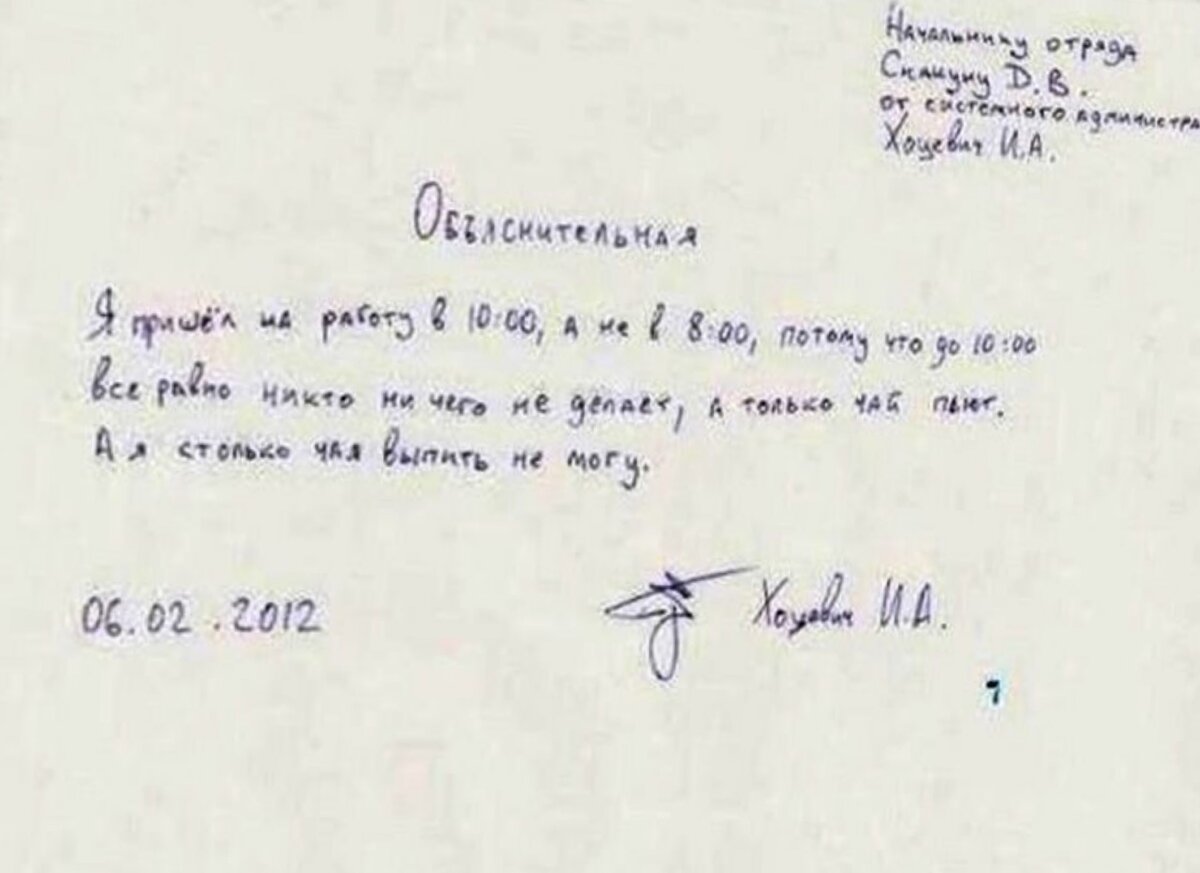 Начальнику отряда
Скакуну Д.В.
от системного администра
Хоцевич И.А.
Объяснительная
Я пришёл на работу в 10:00, а не в 8:00, потому что до 10:00
все равно никто ни чего не делает, а только чай пьют.
А я столько чая выпить не могу.
06.02.2012 Хоцевич И.А.